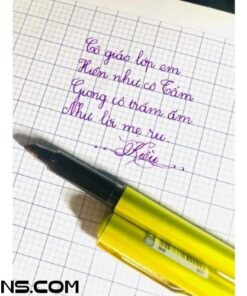 Cô giáo lớp em
Hiền như cô Tấm
Giọng cô trầm ấm
Như lời mẹ ru.
Kiều
NS.COM